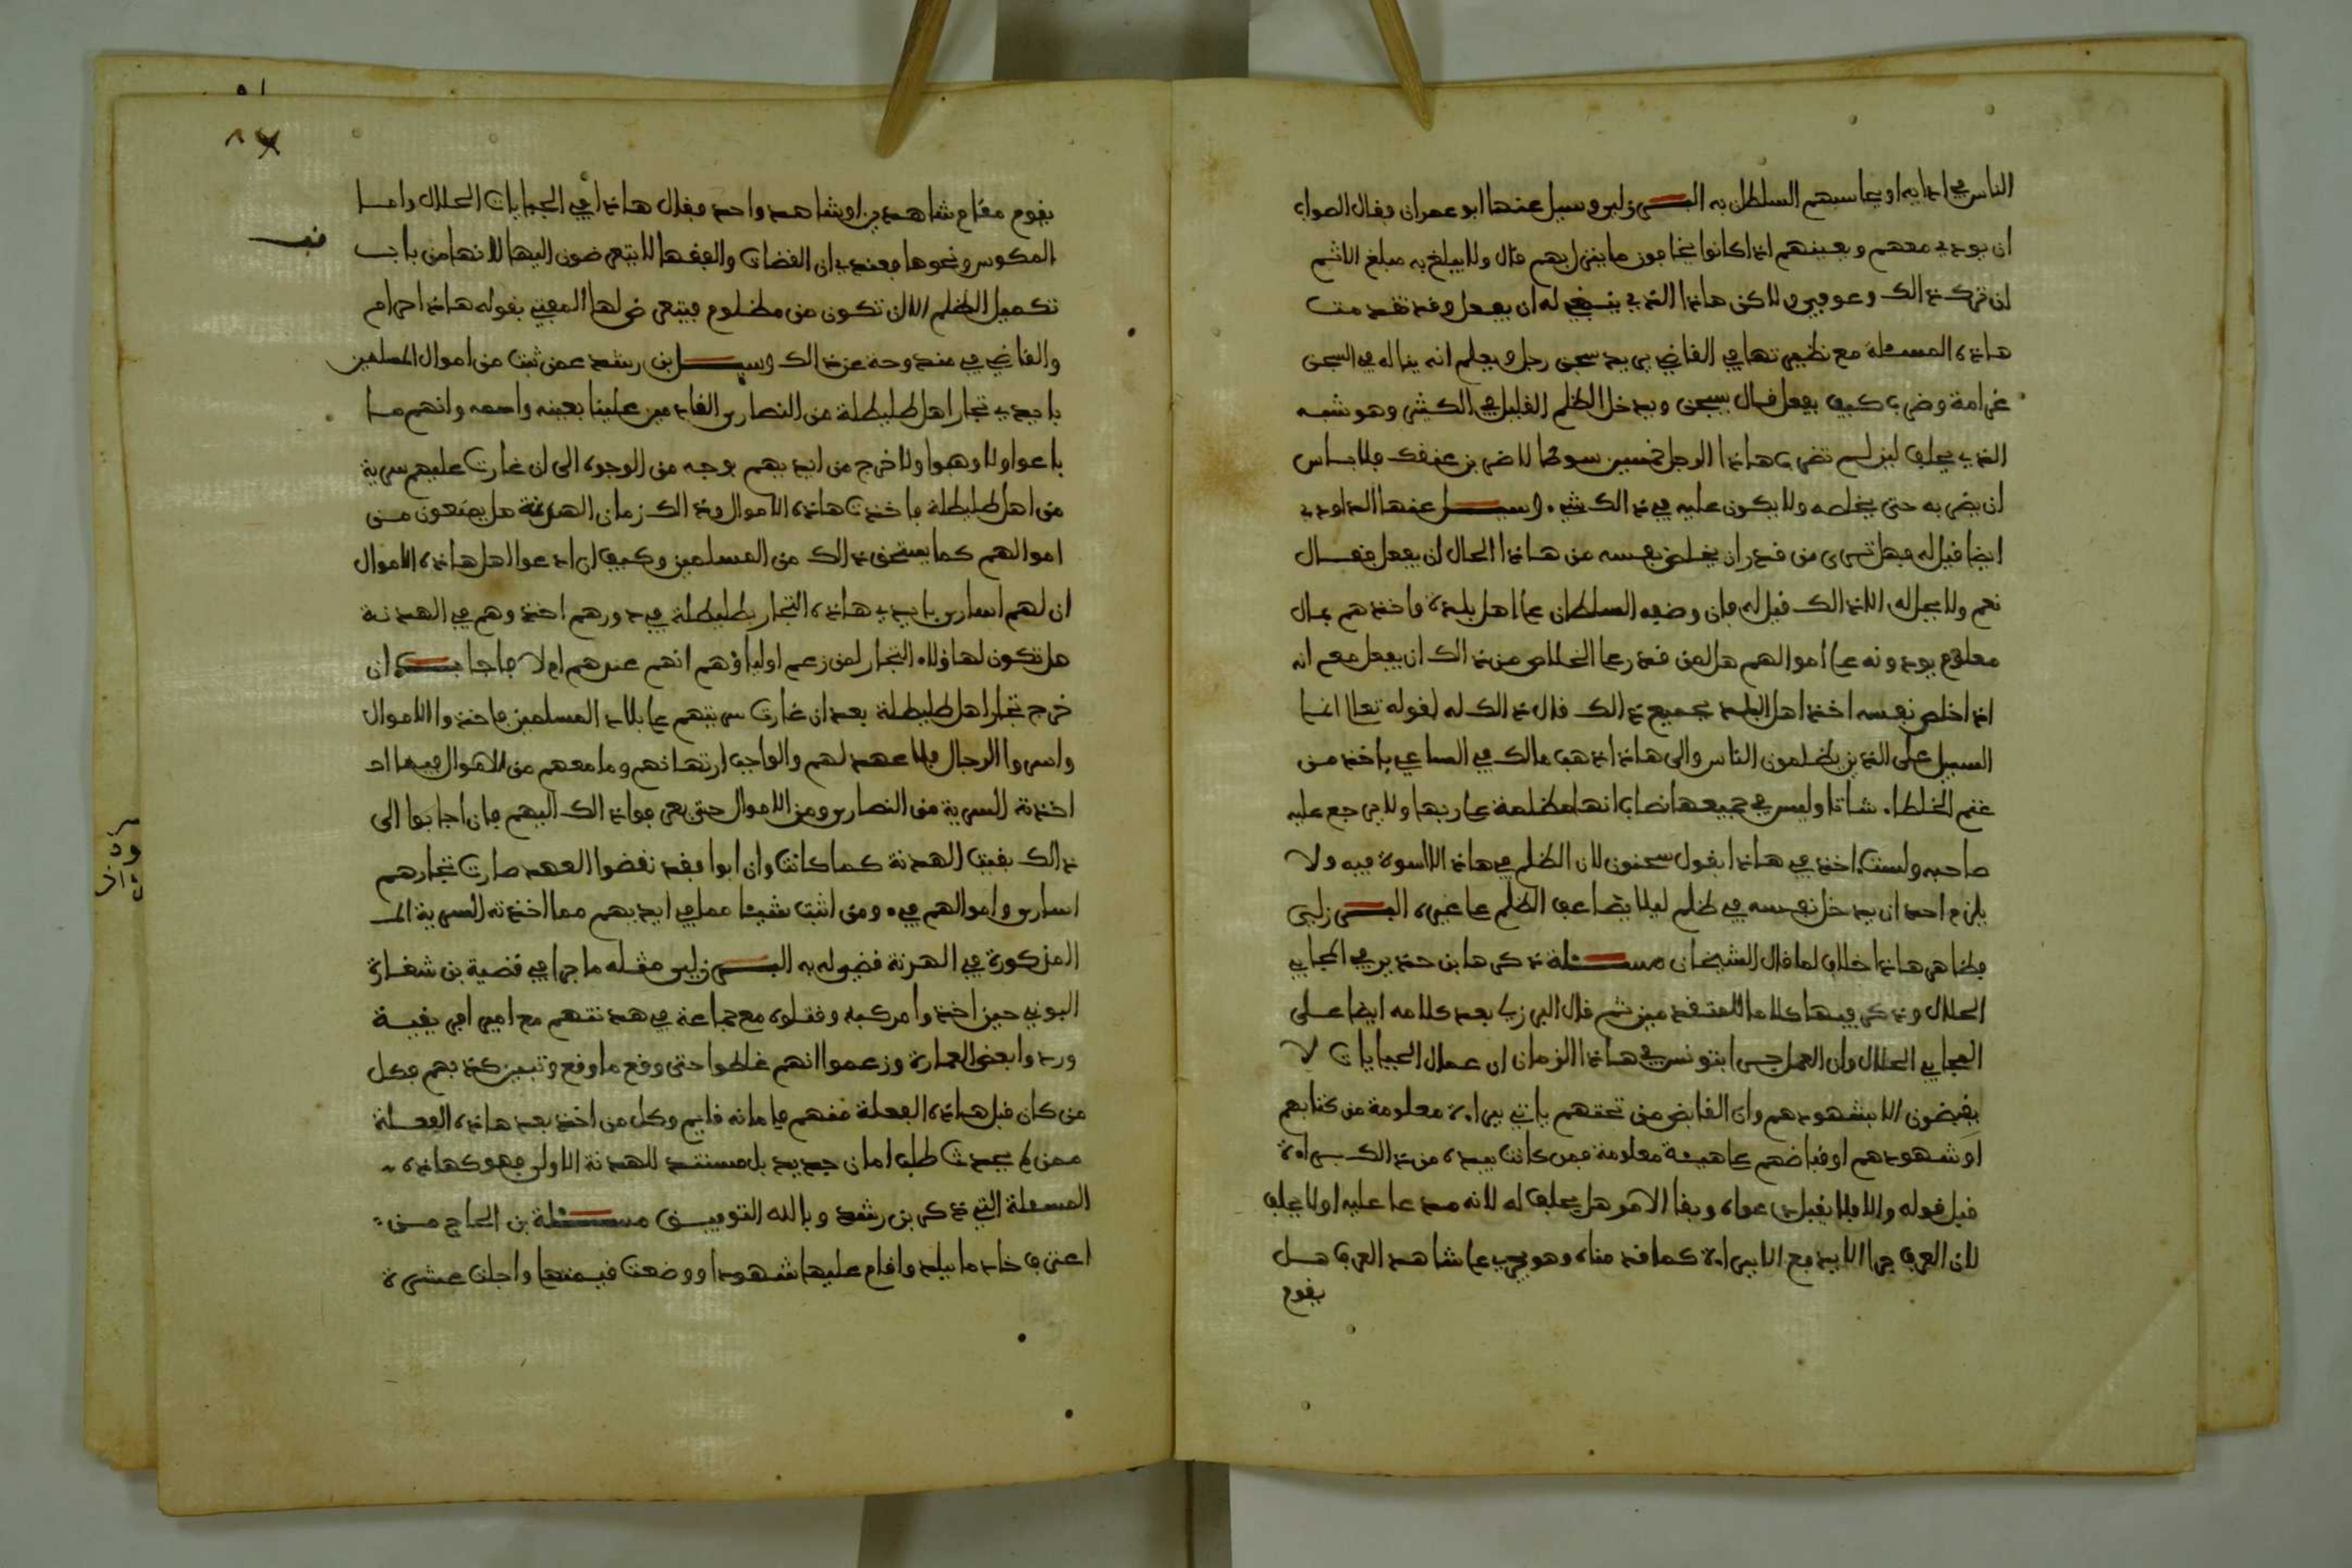 الناس في ادايه او يحاسبهم السلطان به البرزلي وسيل عنها ابو عمران فقال الصواب
ان يودي معهم ويعينهم اذا كانوا يخافون ما ينزل بهم قال ولا يبلغ به مبلغ الاثم
ان ترك ذالك وعوفي ولاكن هاذا الذي ينبغي له ان يفعل وقد تقدمت
هاذه المسئلة مع نظيرتها في القاضي يريد سجن رجل ويعلم انه يناله في السجن
غرامة وضرب كيف يفعل قال يسجن ويدخل الظلم القليل في الكثير وهو شبه
الذي يحلف لين لم تضرب هاذا الرجل خمسين سوطا لاضربن عنقك فلا باس
ان يضربه حتى يخلصه ولا يكون عليه في ذالك شيء وسيل عنها الداودي
ايضا قيل له فهل ترى من قدر ان يخلص نفسه من هاذا الحال ان يفعل فقال
نعم ولا يحل له الا ذالك قيل له فان وضعه السلطان على اهل بلدة واخذهم بمال
معلوم يودونه على اموالهم هل لمن قدر على الخلاص من ذالك ان يفعل مع انه
اذا خلص نفسه اخذ اهل البلد بجميع ذالك قال ذالك له لقوله تعالى انما
السبيل على الذين يظلمون الناس والى هاذا ذهب مالك في الساعي ياخذ من
غنم الخلطاء شاتا وليس في جميعها نصاب انها مظلمة على ربها ولا يرجع عليه
صاحبه ولست اخذ في هاذا بقول سحنون لان الظلم في هاذا لا اسوة فيه ولا
يلزم احد ان يدخل نفسه في ظلم ليلا يضاعف الظلم على غيره البرزلي
فظاهر هاذا خلاف لما قال الشيخان مسئلة ذكرها بن حذير في المجابي
الحلال وذكر فيها كلاما للمتقدمين ثم قال البرزلي بعد كلامه ايضا على
المجابي الحلال وان العمل جرى بتونس في هاذا الزمان ان عمال الجبايات لا
يقبضون الا بشهودهم وان القابض من تحتهم ياتي ببراءة معلومة من كتابهم
او شهودهم او قباضهم على هيئة معلومة فمن كانت بيده من ذالك براءة
قبل قوله والا فلا يقبل دعواه وبقا الامر هل يحلف له لانه مدعا عليه او لا يحلف
لان العرف جرا الا يدفع الا ببراءة كما قدمناه وهو يجري على شاهد العرف هل
يقوم
يقوم مقام شاهدين او شاهد واحد فقال هاذا في الجبايات الحلال واما
المكوس ونحوها فعندي ان القضاة والفقها لا يتعرضون اليها لانها من باب
تكميل الظلم الا ان تكون من مظلوم فيتعرض لها المفتي بقوله هاذا حرام
والقاضي في مندوحة عن ذالك وسيل ابن رشد عمن ثبت من اموال المسلمين
بايدي تجار اهل طليطلة من النصارى القادمين علينا بعينه واسمه وانهم ما
باعوا ولا وهبوا ولا خرج من ايديهم بوجه من الوجوه الى ان غارت عليهم سرية
من اهل طليطلة فاخذت هاذه الاموال وذالك زمان الهدنة هل يمنعون من
اموالهم كما يستحق ذالك من المسلمين وكيف ان ادعوا اهل هاذه الاموال
ان لهم اسارى بايدي هاذه التجار بطليطلة في دورهم اخذوهم في الهدنة
هل تكون لهاؤلاء التجار لمن زعم اولياؤهم انهم عندهم ام لا فاجاب ان
خرج تجار اهل طليطلة بعد ان غارت سريتهم على بلاد المسلمين فاخذوا الاموال
واسروا الرجال فلا عهد لهم والواجب ارتهانهم وما معهم من الاموال فيما
اخذته السرية من النصارى ومن الاموال حتى يصرفوا ذالك اليهم فان اجابوا الى
ذالك بقيت الهدنة كما كانت وان ابوا فقد نقضوا العهد صارت تجارهم
اسارى واموالهم فيء ومن اثبت شيئا مما في ايديهم مما اخذته السرية
المذكورة في الهدنة قضي له به البرزلي مثله ما جرا في قضية بن شغارة
البوني حين اخذوا مركبه وقتلوه مع جماعة في هدنتهم مع امير افريقية
وردوا بعض العمارة وزعموا انهم غلطوا حتى وقع ما وقع وتبين كذبهم فكل
من كان قبل هاذه الفعلة منهم فامانه قايم وكل من اخذ بعد هاذه الفعلة
ممن لم يحدث طلب امان جديد بل مستند للهدنة الاولى فهو كهاذه
المسئلة التي ذكر بن رشد وبالله التوفيق مسئلة بن الحاج من
اعترف خادما ببلد واقام عليها شهودا ووضعت قيمتها واجلت عشرة